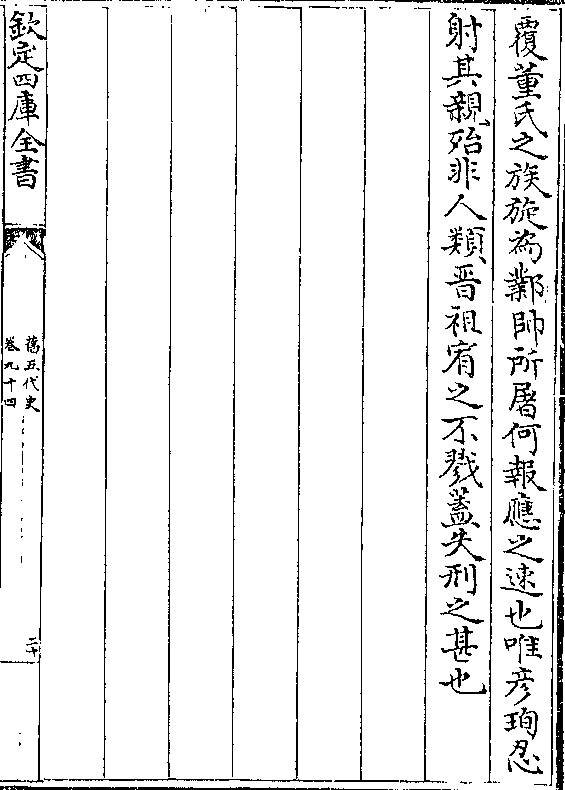 覆董氏之族旋為鄴帥所屠何報應之速也唯彦珣忍
射其親殆非人類晋祖宥之不戮蓋失刑之甚也
欽定四庫全書
舊五代史
卷九十四
二十